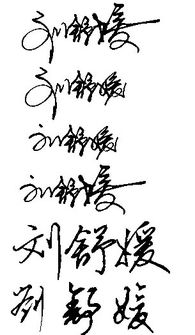 刘舒媛
刘舒媛
刘舒媛
刘舒媛
刘舒媛
劉舒媛